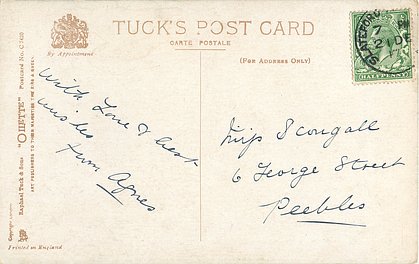 TUCK'S POST CARD
CARTE POSTALE
By Appointment
(FOR ADDRESS ONLY)
HALFPENNY
21 DE
With Love & best
wishes
from Agnes
Miss Scougall
6 George Street
Peebles
Raphael Tuck & Sons' "OILETTE" Postcard No.
ART PUBLISHERS TO THEIR MAJESTIES THE KING & QUEEN
Copyright
Printed in England